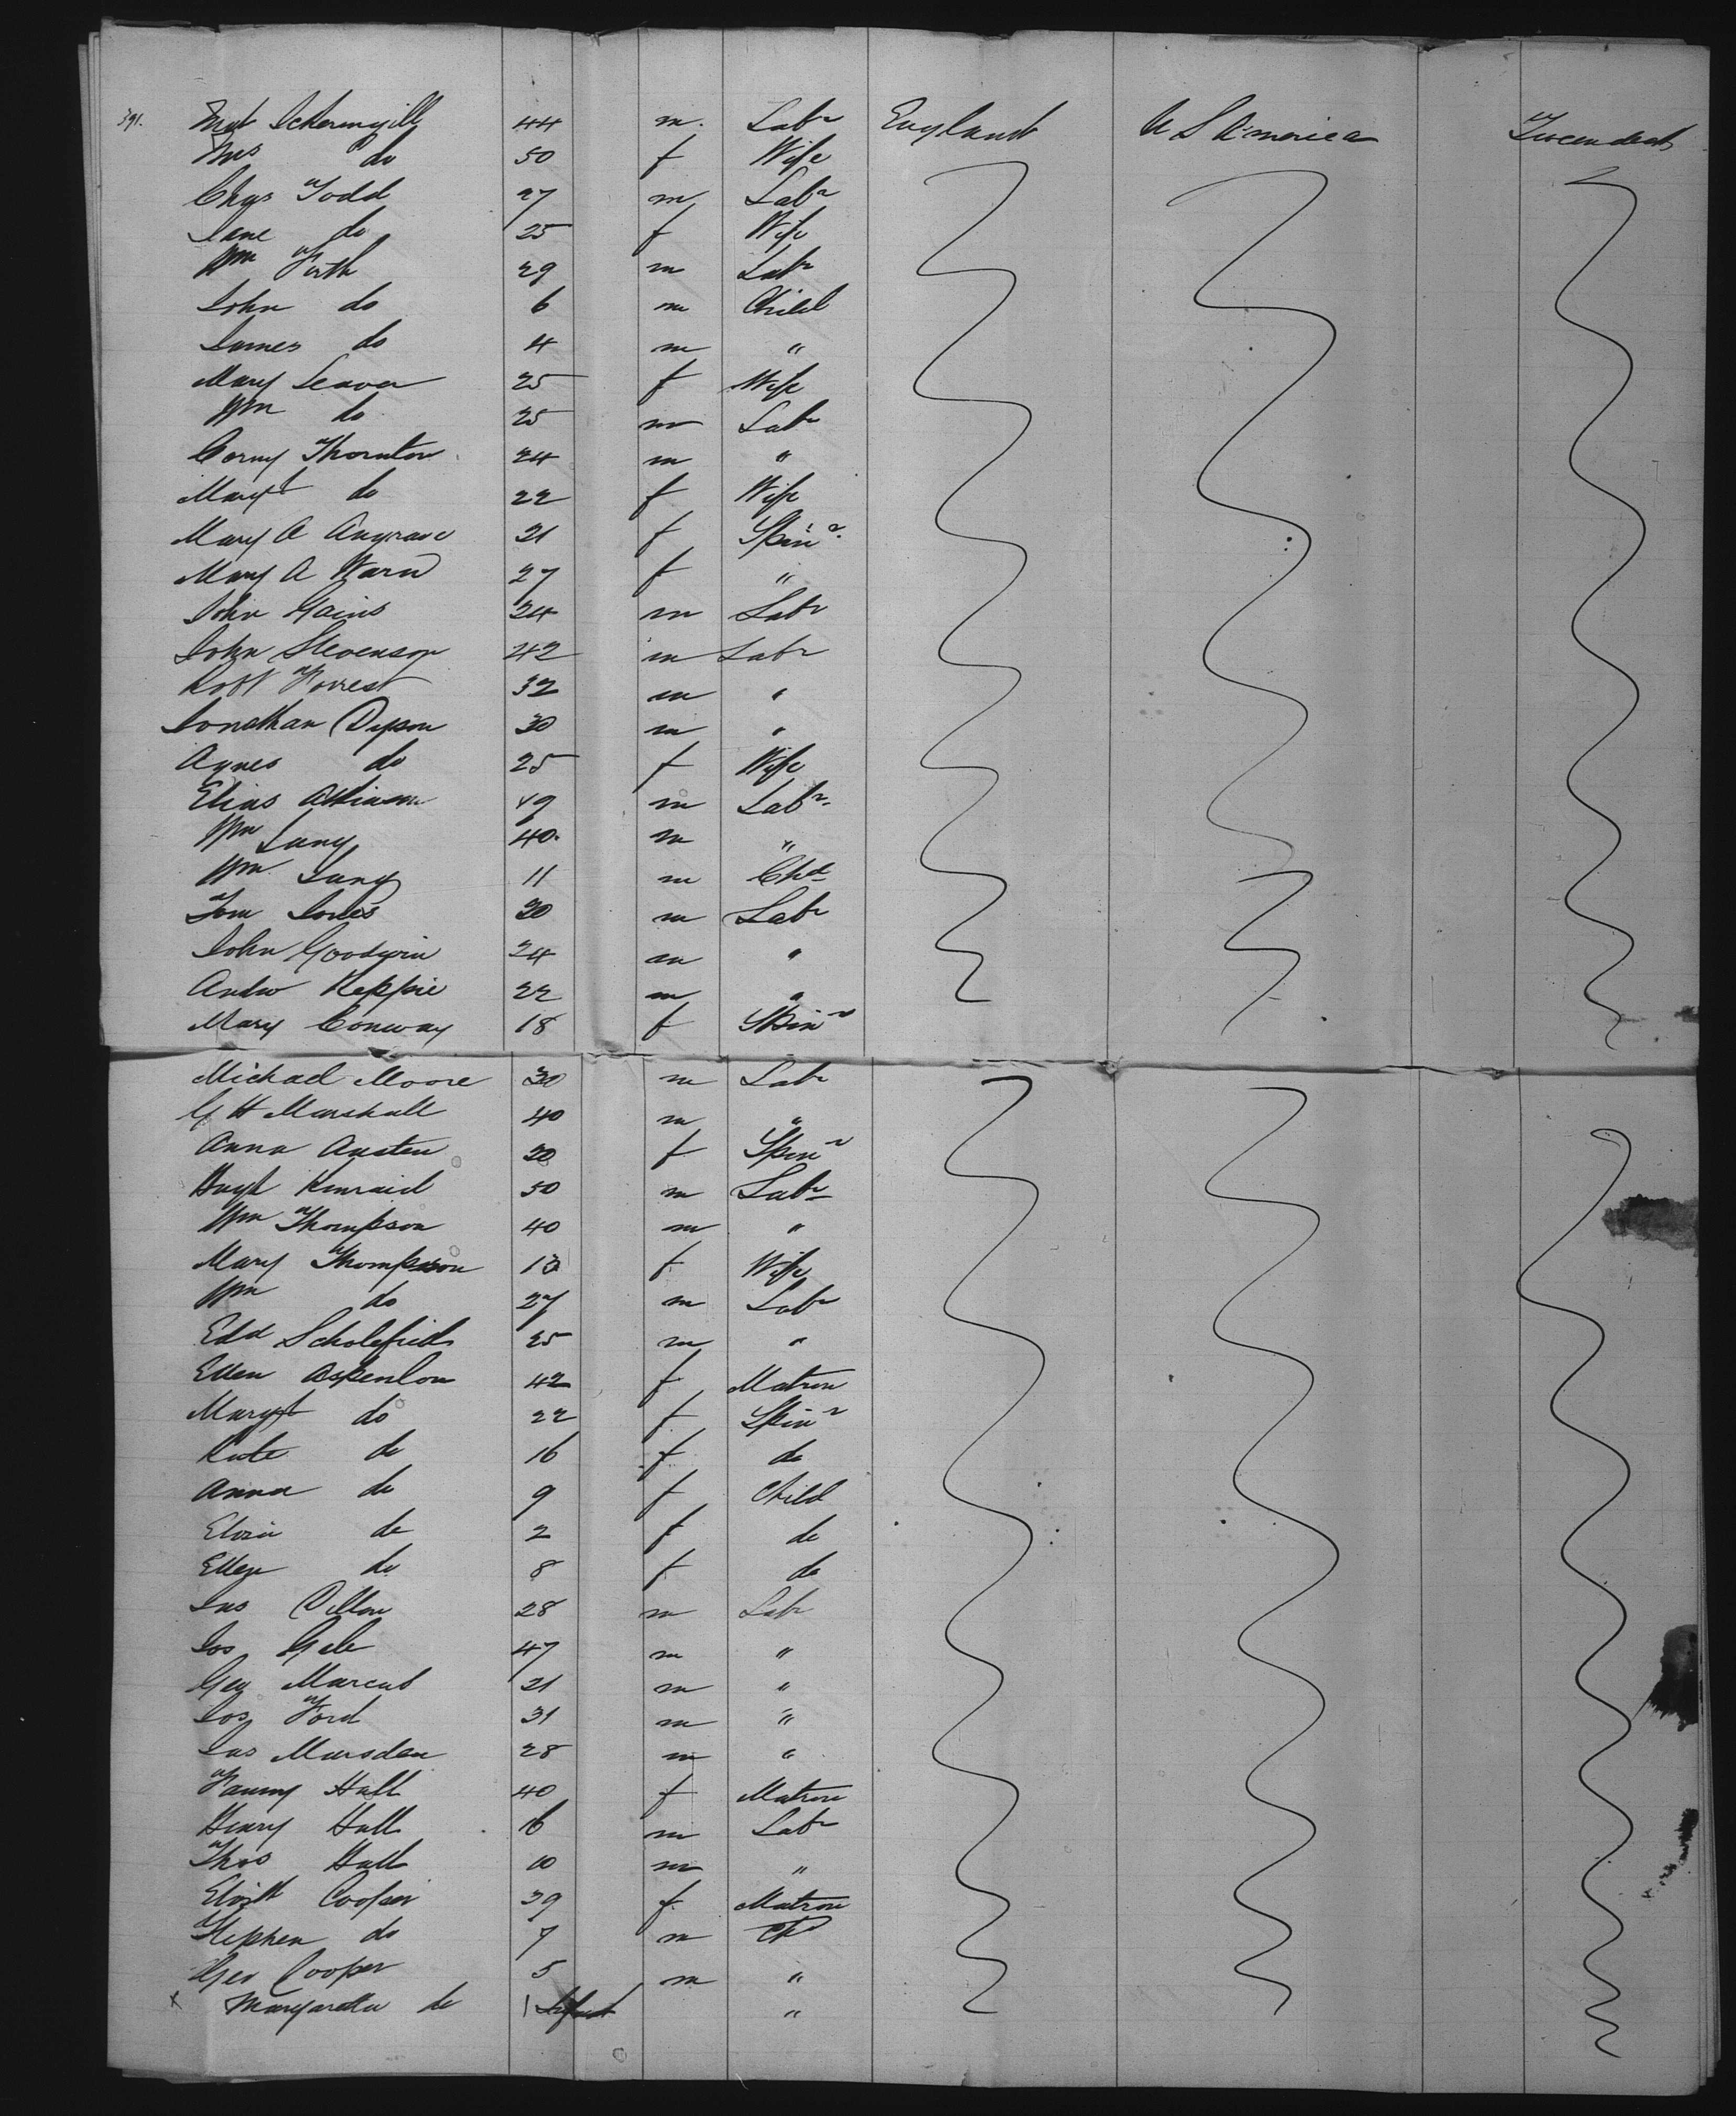 391. 44 m. Labr England U S America
Mrs do 50 f Wife
Chas Todd 27 m Labr
Jane do 25 f Wife
Wm Firth 29 m Labr
John do 6 m Child
James do 4 m "
Mary Seavor 25 f Wife
Wm do 25 m Labr
Thornton 24 m "
Margt do 22 f Wife
Mary A 21 f Spinr
Mary A Ward 27 f "
John Gains 24 m Labr
John Stevenson 42 m Labr
Robt Forrest 32 m "
Jonathan Dyson 30 m "
Agnes do 25 f Wife
Elias Atkinson 49 m Labr
Wm Lang 40 m "
Wm Lang 11 m Chd
Tom Jones 20 m Labr
John Goodwin 24 m "
Andw Keppie 22 m "
Mary Conway 18 f Spinr
Michael Moore 30 m Labr
G H Marshall 40 m "
Anna Austen 20 f Spinr
Hugh Kinraid 50 m Labr
Wm Thompson 40 m "
Mary Thompson f Wife
Wm do 27 m Labr
Edd Scholefield 25 m "
Ellen Aspenlon 42 f Matron
Margt do 22 f Spinr
Kate do 16 f do
Anna do 9 f Child
Eliza do 2 f do
Ellen do 8 f do
Jas Dillon 28 m Labr
Jos Gale 47 m "
Geo Marcus 21 m "
Jos Ford 31 m "
Jas Marsden 28 m "
Fanny Hall 40 f Matron
Henry Hall 16 m Labr
Thos Hall 10 m "
Elizth Cooper 39 f Matron
Stephen do 7 m Chd
Geo Cooper 5 m "
x Margaretta do 1 Infant "